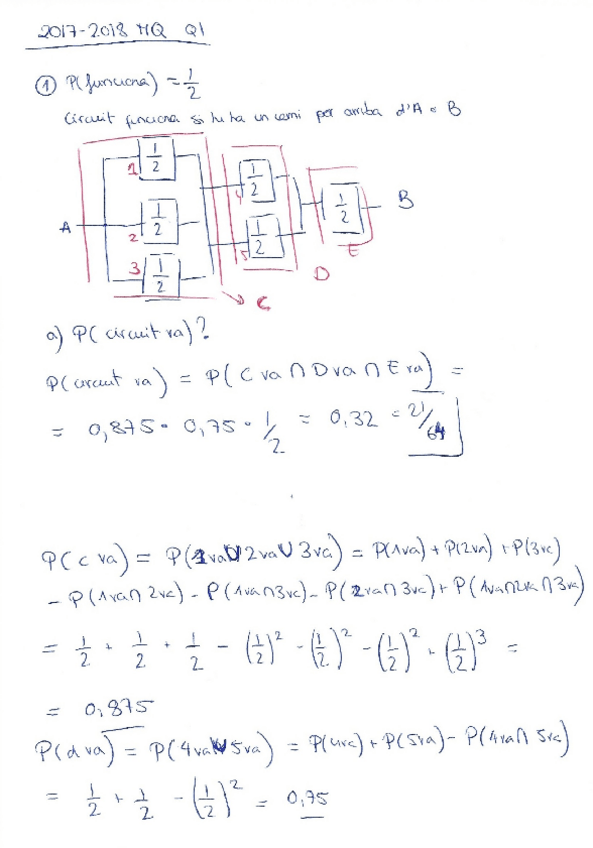 2017-2018 MQ Q1
① P(funciona) = 1/2
Circuit funciona si hi ha un camí per arriba d'A a B
1 1/2
2 1/2
3 1/2
4 1/2
5 1/2
1/2
A
B
C
D
E
a) P(circuit va)?
P(circuit va) = P(C va ∩ D va ∩ E va) =
= 0,875 · 0,75 · 1/2 = 0,32 = 21/64
P(c va) = P(1va ∪ 2va ∪ 3va) = P(1va) + P(2va) + P(3va)
- P(1va ∩ 2va) - P(1va ∩ 3va) - P(2va ∩ 3va) + P(1va ∩ 2va ∩ 3va)
= 1/2 + 1/2 + 1/2 - (1/2)² - (1/2)² - (1/2)² + (1/2)³ =
= 0,875
P(d va) = P(4va ∪ 5va) = P(4va) + P(5va) - P(4va ∩ 5va)
= 1/2 + 1/2 - (1/2)² = 0,75